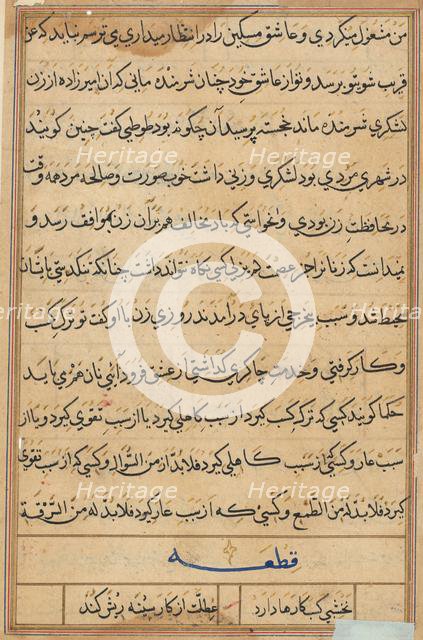 من مشغول میکردی و عاشق مسکین را در انتظار میداری می ترسم نباید که عن
قریب شوی تو برسد و تو از عاشق خود چنان شرمنده مانی که آن امیر زاده از زن
لشکری شرمنده ماند خجسته پرسید آن چگونه بود طوطی گفت چنین کویند
در شهری مردی بود لشکری و زنی داشت خوب صورت و صالحه مرد همه وقت
در محافظت زن بودی و نخواستی که باد مخالف هم بر آن زن موافق رسد و
نمیدانست که زنانرا جز عصمت غریزی کسی نگاه نتواند داشت چنانکه تنکدستی بایشان
محیط شد و سبب بیخرجی از پای درامدند روزی زن با او کفت تو ترک کسب
و کار کرفتی و خدمت چاکری کذاشتی از عشق فرود آی نان هم می باید
حکما کویند کسی که ترک کسب کیرد از سبب کاهلی کیرد یا از سبب تقوی کیرد و یا از
سبب عار و کسی از سبب کاهلی کیرد فلا بد له من السوال و کسی که از سبب تقوی
کیرد فلا بد له من الطمع و کسی که از سبب عار کیرد فلا بد له من السرقة
قطعه
نخشبی کسب کارها دارد عطلت از کار سینه ریش کند
Heritage
Images